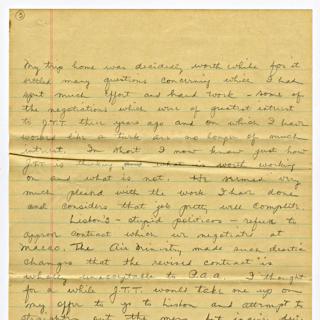 3
My trip home was decidedly worth while for it
settled many questions concerning which I had
spent much effort and hard work - some of
the negotiations which were of greatest interest
to J.T.T. three years ago and on which I have
worked like a turk are no longer of much
interest. In short I now know just how
J.T.T. is thinking and what is worth working
on and what is not. He seemed very
much pleased with the work I have done
and considers that job pretty well complete.
Lisbon's - stupid politicos - refuse to
approve contract which we negotiated at
Macao. The Air Ministry made such drastic
changes that the revised contract is
wholly unacceptable to P.A.A. I thought
for a while J.T.T. would take me up on
my offer to go to Lisbon and attempt to
straighten out the mess but